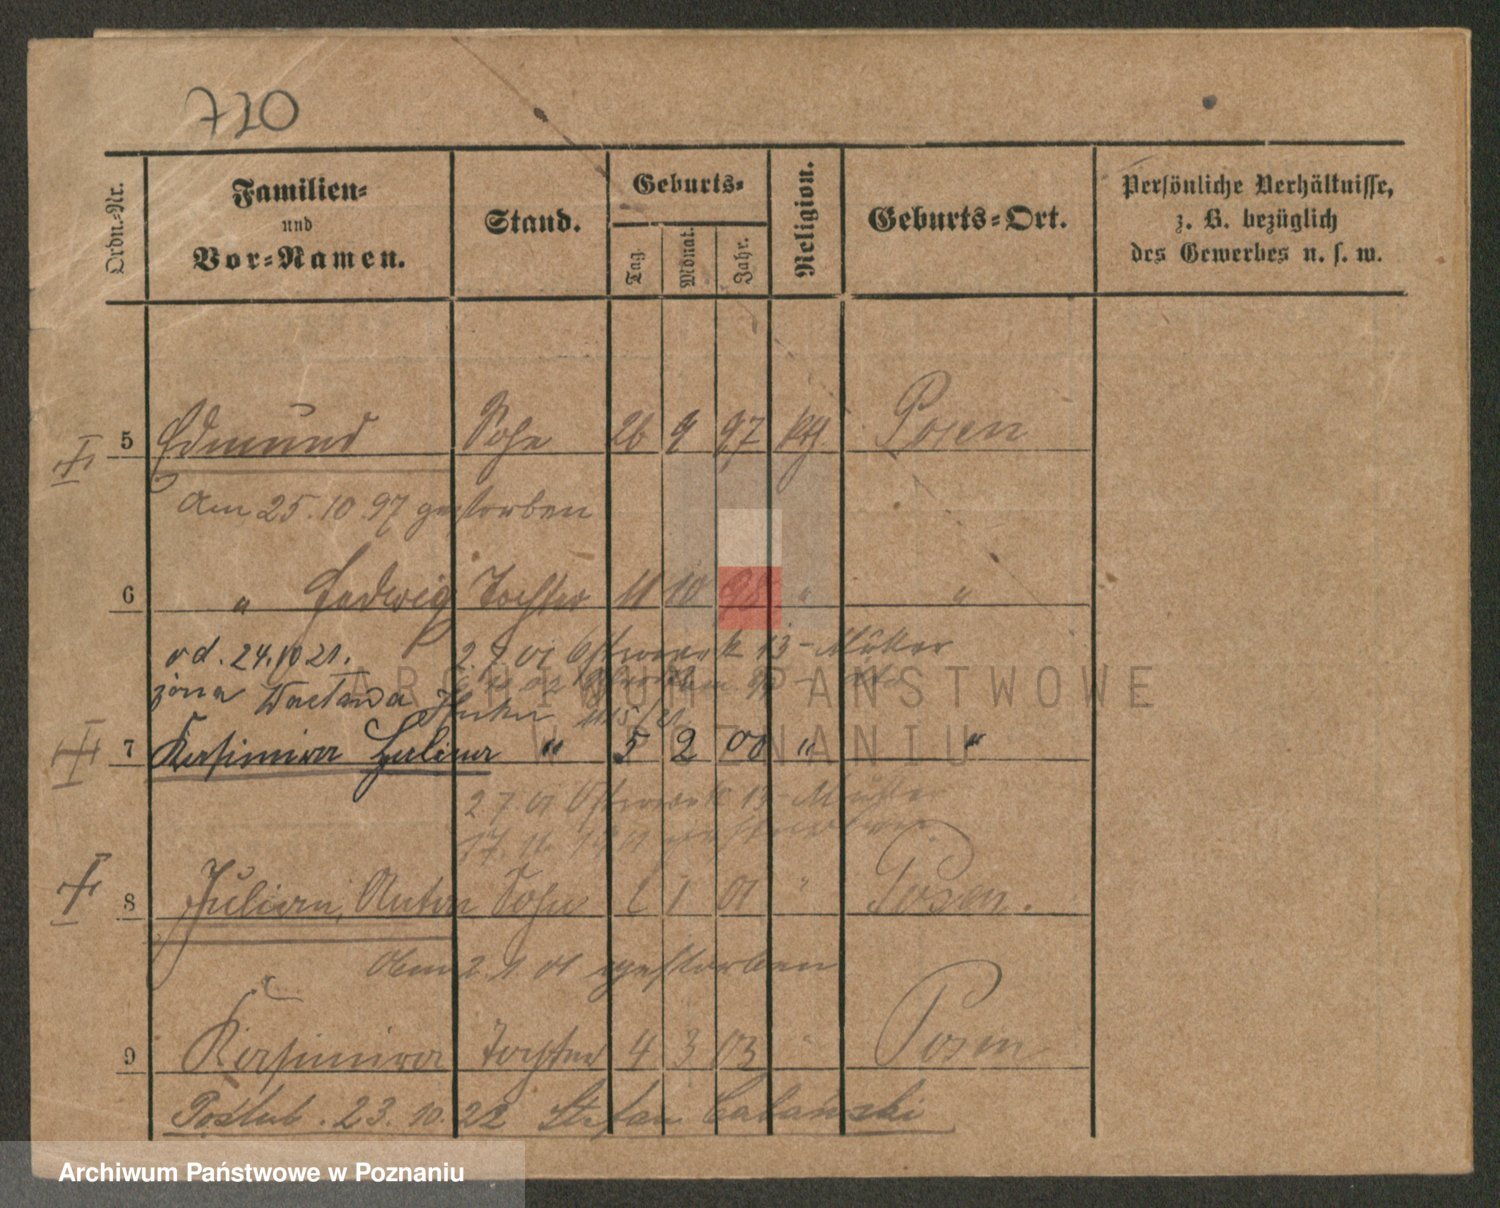 720
Ordn.-Nr. Familien- und Vor-Namen. Stand. Geburts- Tag. Monat. Jahr. Religion. Geburts-Ort. Persönliche Verhältnisse, z. B. bezüglich des Gewerbes u. s. w.
5 Edmund Sohn 26 9 97 kth. Posen
Am 25.10.97 gestorben
6 " Hedwig Tochter 11 10 98 " "
od. 24.10 21. 2.7.01 13 - Mutter
żona Wacława
7 Kasimira Halina " 5 2 00 " "
2 7 01 13 - Mutter
17. 11. gestorben
8 Julian, Anton Sohn 2 1 01 " Posen.
Am 2.1.01 gestorben
9 Kasimira Tochter 4 3 03 " Posen
Poślub. 23.10.22 Stefan
ARCHIWUM PAŃSTWOWE
W POZNANIU
Archiwum Państwowe w Poznaniu